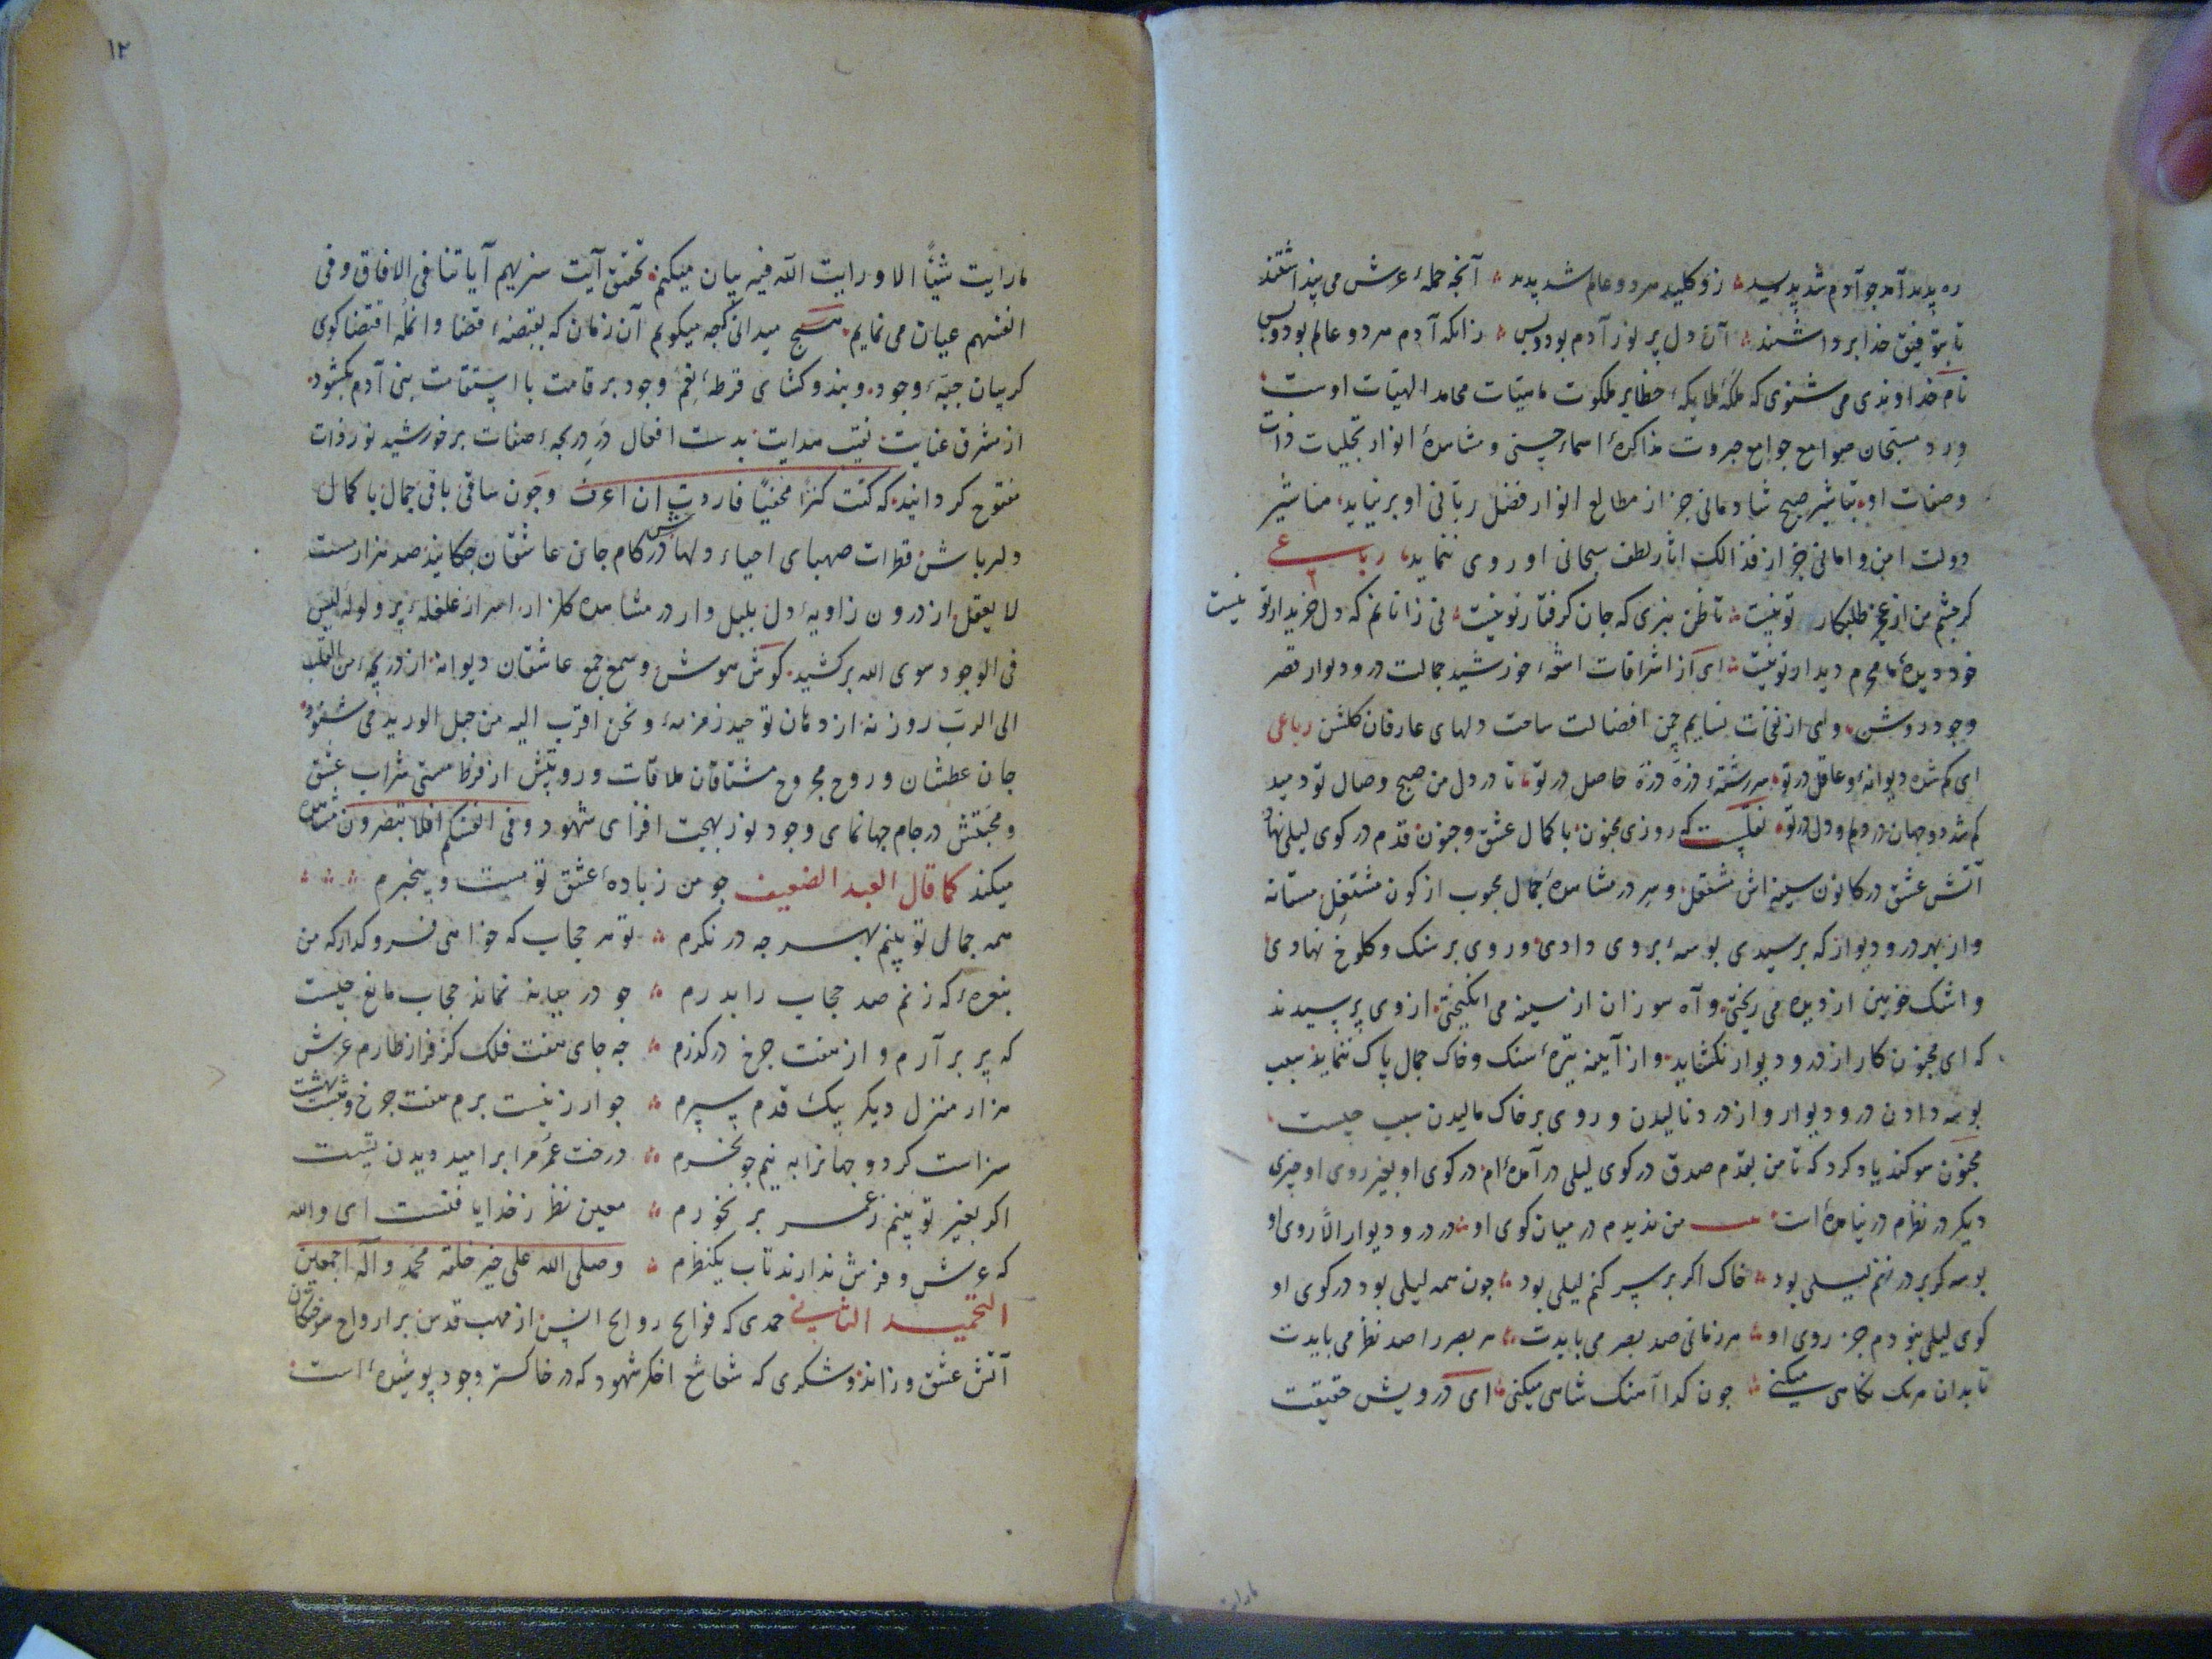 ره پدید آمد چو آدم شد پدید زو کلید هر دو عالم شد پدید آنچه حمله عرش می پنداشتند
تا بتوفیق خدا برداشتند آن دل پر نور آدم بود و بس زانکه آدم هر دو عالم بود و بس
نام خداوندی می شنوی که ملایکه حظایر ملکوت محامد الهیات اوست
ورد مسبحان صوامع جوامع جبروت مذاکره اسماء حسنی و مشاهدهٔ انوار تجلیات ذات
وصفات او تباشیر صبح شادمانی جز از مطالع انوار فضل ربانی او برنیاید مناشیر
دولت امن و امانی جز از فذالک اثار لطف سبحانی او روی ننماید رباعی
کر چشم من از عجز طلبکار تو نیست تا ظن نبری که جان کرفتار تو نیست نی زانم که دل خریدار تو نیست
خود دیده ما محرم دیدار تو نیست ای از اشراقات اشعه خورشید جمالت در و دیوار قصر
وجود روشن وای از نفحات نسایم چمن افضالت ساحت دلهای عارفان کلشن رباعی
ای کم شده دیوانه و عاقل در تو سررشته ذره ذره حاصل در تو تا در دل من صبح وصال تو دمید
کم شد دو جهان در دلم و دل در تو نقلست که روزی مجنون با کمال عشق و جنون قدم در کوی لیلی نهاد
آتش عشق در کانون سینه اش مشتعل و سر در مشاهدهٔ جمال محبوب از کون مشتغل مستانه
وار بهر در و دیوار که برسیدی بوسه بروی دادی و روی بر سنک و کلوخ نهادی
و اشک خونین از دیده می ریختی و آه سوزان از سینه می انکیختی از وی پرسیدند
که ای مجنون کار از در و دیوار نکشاید و از آیینه تیره سنک و خاک جمال پاک ننماید سبب
بوسه دادن در و دیوار و از درد نالیدن و روی بر خاک مالیدن سبب چیست
مجنون سوکند یاد کرد که تا من بقدم صدق در کوی لیلی در آمده ام در کوی او بغیر روی او چیزی
دیکر در نظرم در نیامده است من ندیدم در میان کوی او در در و دیوار الا روی او
بوسه کر بر در زنم لیلی بود خاک اکر بر سر کنم لیلی بود چون همه لیلی بود در کوی او
کوی لیلی نبودم جز روی او هر زمانی صد بصر می بایدت هر بصر را صد نظر می بایدت
تا بدان هر یک نکاهی میکنی چون کدا آهنک شاهی میکنی ای درویش حقیقت
۱۲
ما رایت شیئا الا و رایت الله فیه بیان میکنم تحقیق آیت سنریهم آیاتنا فی الافاق و فی
انفسهم عیان می نمایم هیچ میدانی که چه میکویم آن زمان که بقبضه قضا و انمله اقتضا کوی
کریبان جبه وجود و بند کشای قرطه نغم وجود بر قامت با استقامت بنی آدم بکشود
از مشرق عنایت نقیب هدایت بدست افعال در دریچه صفات بر خورشید نور ذات
مفتوح کردانید که کنت کنزا مخفیا فاردت ان اعرف و چون ساقی باقی جمال با کمال
دلرباش قطرات صهبای احیاء دلها در کام جان عاشقان چکانید صد هزار مست
لا یعقل از درون زاویه دل بلبل وار در مشاهده کلزار اسرار غلغله پر ولوله لیس
فی الوجود سوی الله برکشید کوش هوش و سمع جمع عاشقان دیوانه از دریچه من القلب
الی الرب روزنه از دهان توحید زمزمه و نحن اقرب الیه من حبل الورید می شنود
جان عطشان و روح مجروح مشتاقان ملاقات و رویتش از فرط مستی شراب عشق
و محبتش در جام جهانمای وجود نور بهجت افزای شهود و فی انفسکم افلا تبصرون مشاهده
میکند کما قال العبد الضعیف چو من ز باده عشق تو مست و بیخبرم
همه جمال تو بینم بهر چه در نکرم تو هر حجاب که خواهی فرو کذار که من
بنعره که زنم صد حجاب را بدرم چو در میانه نماند حجاب مانع چیست
که پر بر آرم و از هفت چرخ در کذرم چه جای هفت فلک کز فراز طارم عرش
هزار منزل دیکر بیک قدم سپرم جوار نیست برم هفت چرخ و هشت بهشت
سزاست کر دو جهانرا به نیم جو نخرم درخت عمر مرا بر امید دیدن تست
اکر بغیر تو بینم ز عمر بر نخورم معین نظر ز خدا یافتست ای والله
که عرش و فرش ندارند تاب یکنظرم وصلی الله علی خیر خلقه محمد و آله اجمعین
التحمید الثانی حمدی که فوایح روایح انس از مهب قدس بر ارواح سوختکان
آتش عشق وزاند و شکری که شعاشع اخکر شهود که در خاکستر وجود پوشیده است